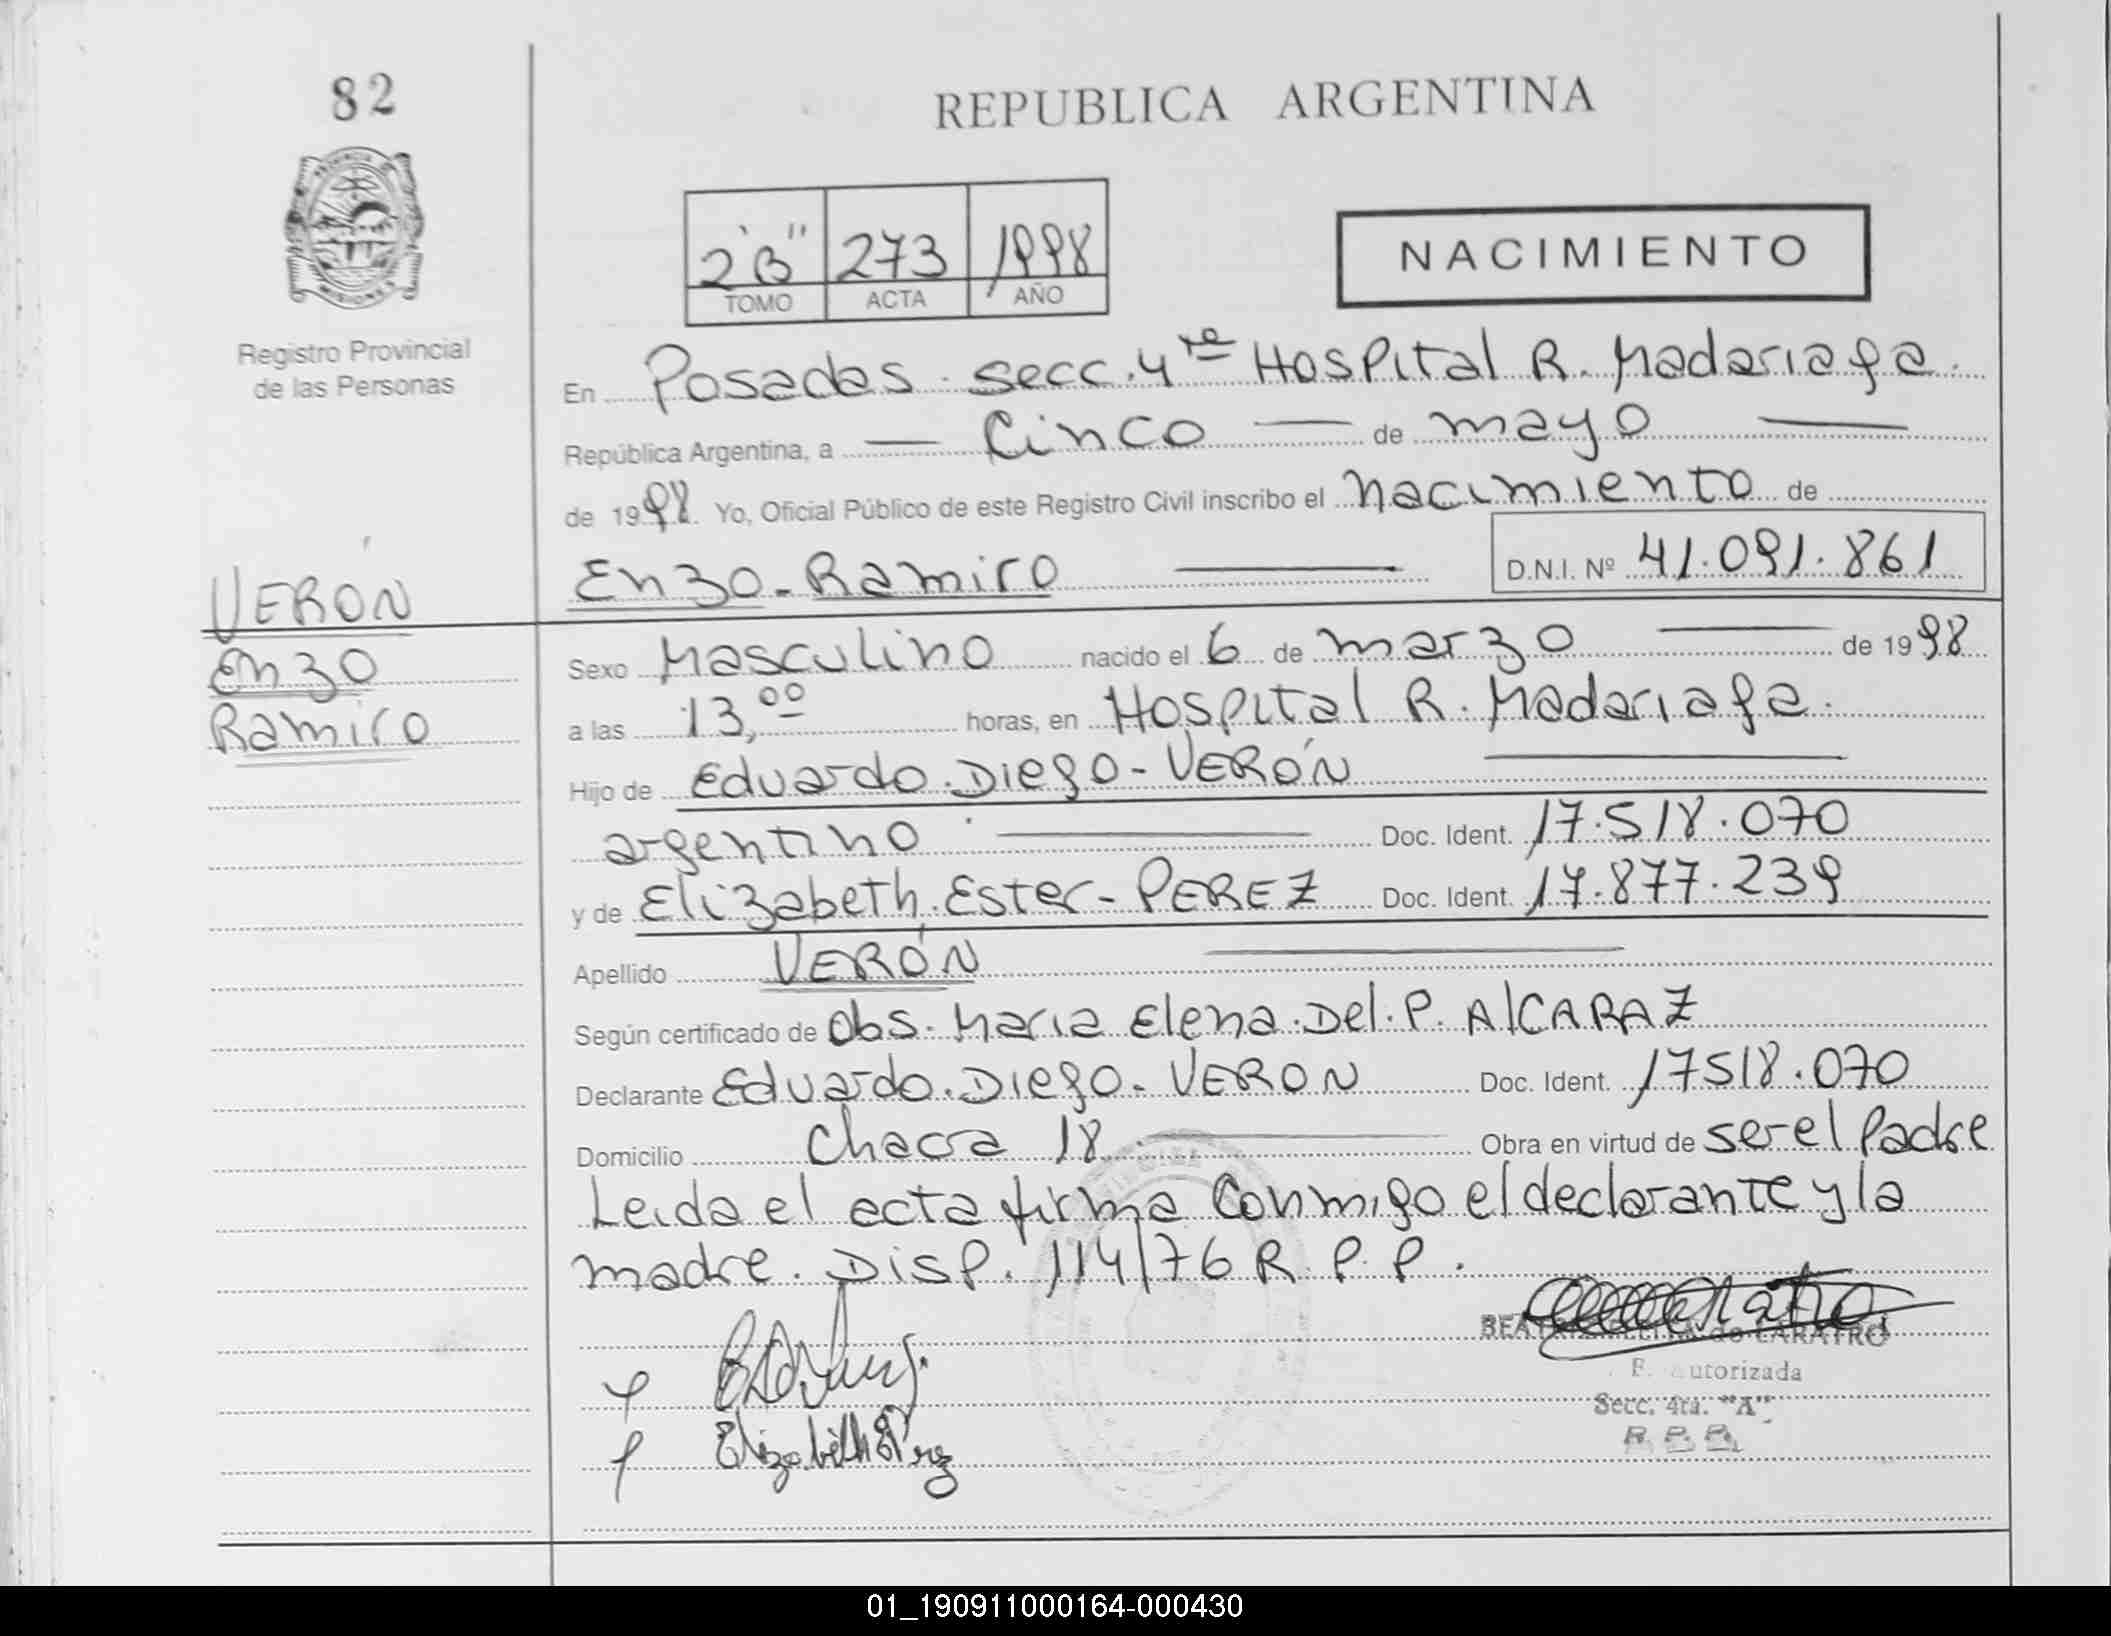 82
REPUBLICA ARGENTINA
2 "B" 273 1998
TOMO ACTA AÑO
NACIMIENTO
Registro Provincial
de las Personas
En Posadas. secc. 4ta Hospital R. Madariaga.
República Argentina, a — Cinco — de mayo —
de 1998. Yo, Oficial Público de este Registro Civil inscribo el nacimiento de
Enzo - Ramiro — D.N.I. Nº 41.091.861
VERÓN
Enzo
Ramiro
Sexo Masculino nacido el 6 de marzo — de 1998
a las 13,00 horas, en Hospital R. Madariaga.
Hijo de Eduardo. Diego - VERÓN —
argentino. — Doc. Ident. 17.518.070
y de Elizabeth. Ester - PEREZ Doc. Ident. 17.877.239
Apellido VERÓN —
Según certificado de Obs. Maria Elena. Del. P. AlCARAZ
Declarante Eduardo. Diego - VERON Doc. Ident. 17518.070
Domicilio Chacra 18. — Obra en virtud de ser el Padre
Leida el acta firma Conmigo el declarante y la
madre. Disp. 114/76 R. P. P.
CARATRO
utorizada
Secc. 4ta. "A"
R. P. P.
Elizabeth Perez
01_190911000164-000430